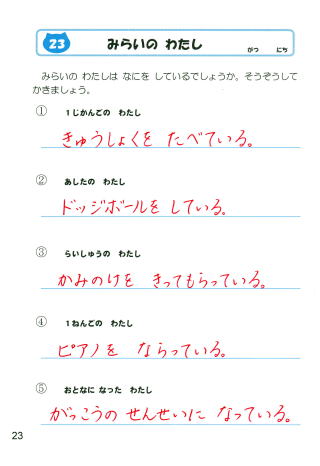 23 みらいの わたし がつ にち
みらいの わたしは なにを しているでしょうか。そうぞうして
かきましょう。
① 1じかんごの わたし
きゅうしょくを たべている。
② あしたの わたし
ドッジボールを している。
③ らいしゅうの わたし
かみのけを きってもらっている。
④ 1ねんごの わたし
ピアノを ならっている。
⑤ おとなに なった わたし
がっこうの せんせいに なっている。
23